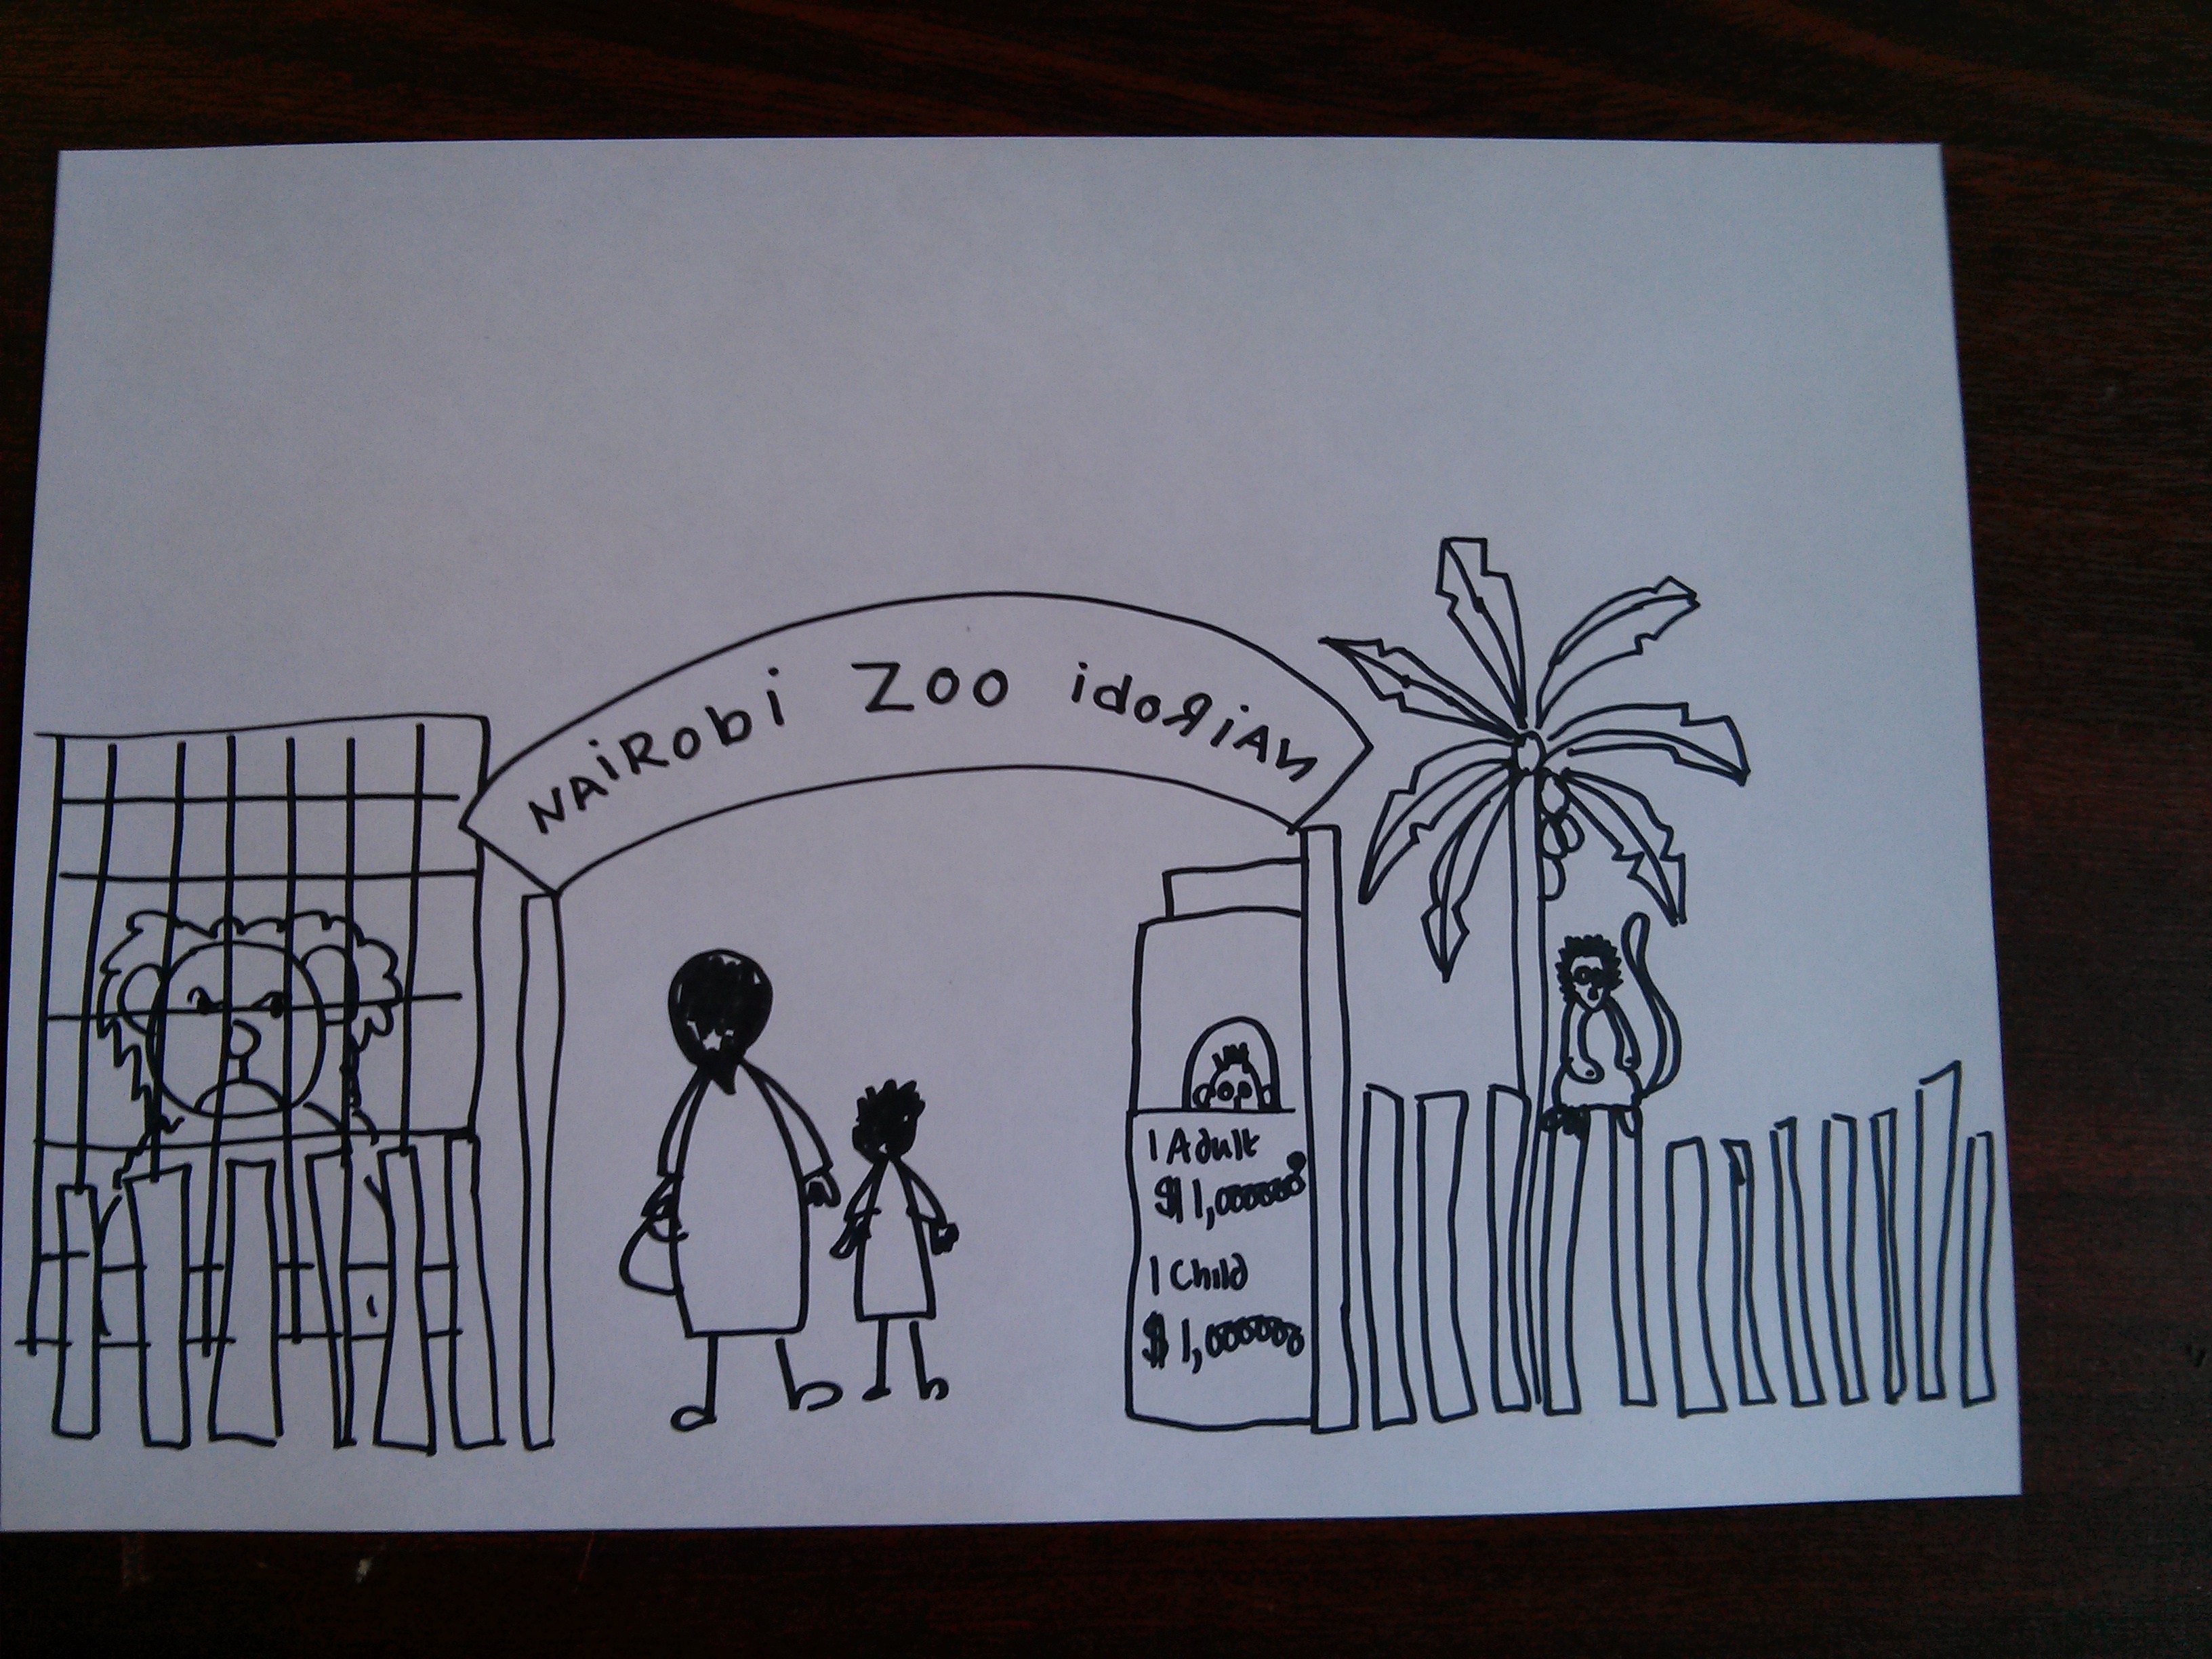 NAiRobi Zoo idoRiAN
1 Adult
$1,000000
1 Child
$1,000000